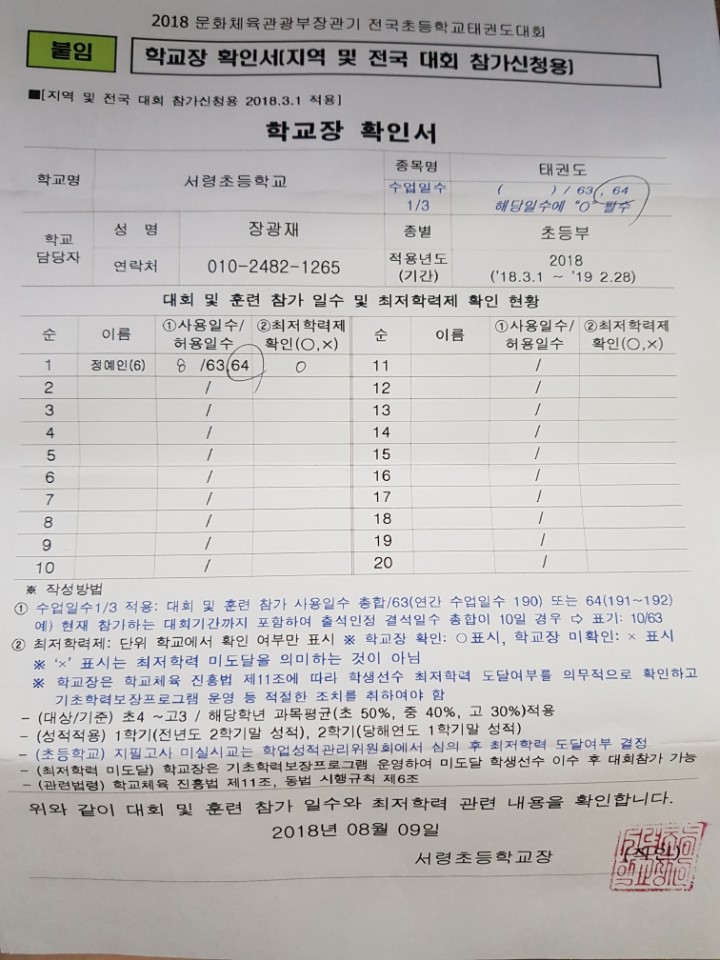 2018 문화체육관광부장관기 전국초등학교태권도대회
붙임
학교장 확인서(지역 및 전국 대회 참가신청용)
■[지역 및 전국 대회 참가신청용 2018.3.1 적용]
학교장 확인서
학교명 서령초등학교 종목명 태권도
수업일수 1/3 ( ) / 63 , 64
해당일수에 "O" 필수
학교 담당자 성 명 장광재 종별 초등부
연락처 010-2482-1265 적용년도 (기간) 2018 ('18.3.1 ~ '19 2.28)
대회 및 훈련 참가 일수 및 최저학력제 확인 현황
순 이름 ①사용일수/허용일수 ②최저학력제 확인(○,×) 순 이름 ①사용일수/허용일수 ②최저학력제 확인(○,×)
1 정예인(6) 8 /63,64 O 11 /
2 / 12 /
3 / 13 /
4 / 14 /
5 / 15 /
6 / 16 /
7 / 17 /
8 / 18 /
9 / 19 /
10 / 20 /
※ 작성방법
① 수업일수1/3 적용: 대회 및 훈련 참가 사용일수 총합/63(연간 수업일수 190) 또는 64(191~192)
예) 현재 참가하는 대회기간까지 포함하여 출석인정 결석일수 총합이 10일 경우 ⇨ 표기: 10/63
② 최저학력제: 단위 학교에서 확인 여부만 표시 ※ 학교장 확인: ○표시, 학교장 미확인: × 표시
※ '×' 표시는 최저학력 미도달을 의미하는 것이 아님
※ 학교장은 학교체육 진흥법 제11조에 따라 학생선수 최저학력 도달여부를 의무적으로 확인하고
기초학력보장프로그램 운영 등 적절한 조치를 취하여야 함
- (대상/기준) 초4 ~고3 / 해당학년 과목평균(초 50%, 중 40%, 고 30%)적용
- (성적적용) 1학기(전년도 2학기말 성적), 2학기(당해연도 1학기말 성적)
- (초등학교) 지필고사 미실시교는 학업성적관리위원회에서 심의 후 최저학력 도달여부 결정
- (최저학력 미도달) 학교장은 기초학력보장프로그램 운영하여 미도달 학생선수 이수 후 대회참가 가능
- (관련법령) 학교체육 진흥법 제11조, 동법 시행규칙 제6조
위와 같이 대회 및 훈련 참가 일수와 최저학력 관련 내용을 확인합니다.
2018년 08월 09일
서령초등학교장 (직인)